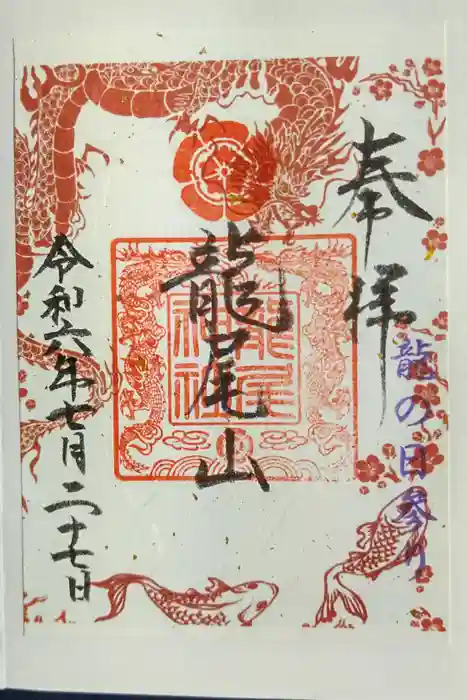 奉拝
龍の日参り
龍尾山
龍尾
神社
令和六年七月二十七日